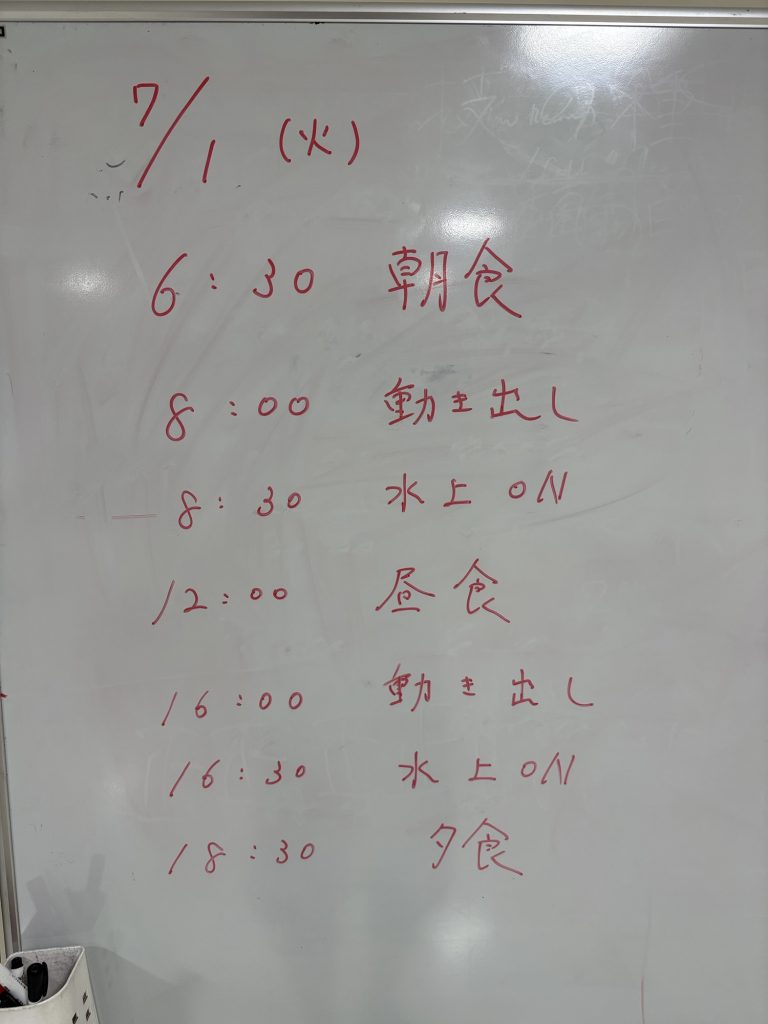 7/1 (火)
6:30 朝食
8:00 動き出し
8:30 水上ON
12:00 昼食
16:00 動き出し
16:30 水上ON
18:30 夕食